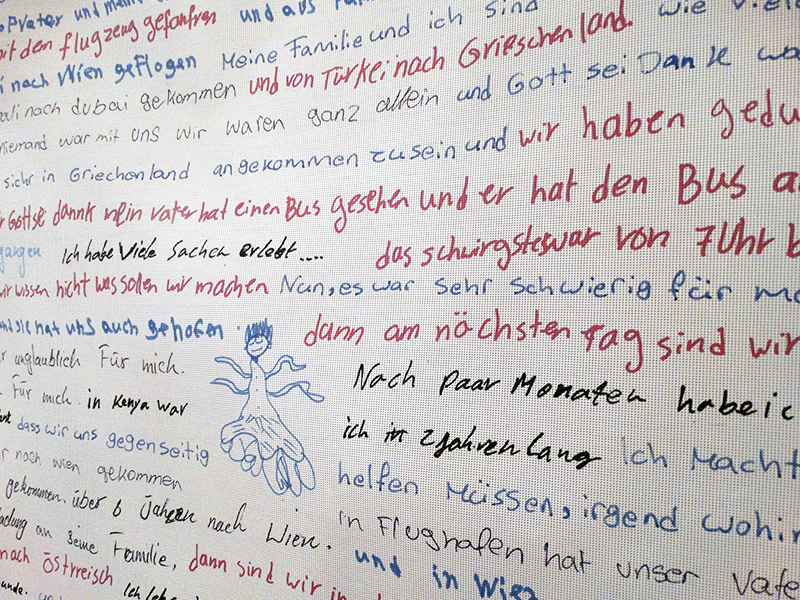 Vater und
mit den flugzeug gefahren und aus
nach Wien geflogen Meine Familie und ich sind wie viele
nach dubai gekommen und von Türkei nach Grieschenland.
niemand war mit uns wir waren ganz allein und Gott sei Dank
sichr in Griechenland angekommen zu sein und wir haben
Gott sei dannk mein vater hat einen Bus gesehen und er hat den Bus
gangen Ich habe Viele Sachen erlebt.... das schwirgste war von 7 Uhr
wir wissen nicht was sollen wir machen Nun, es war sehr schwierig für
sie hat uns auch geholfen dann am nächsten Tag sind wir
unglaublich Für mich.
Nach paar Monaten habe ic
Für mich. in Kenya war
ich in 2 jahren lang Ich Macht
dass wir uns gegenseitig
helfen Müssen, irgend wohin
nach wien gekommen
gekommen. über 6 Jahren nach Wien.
in Flughafen hat unser Vate
an seine Familie, dann sind wir in
und in Wien
nach östrreisch Ich lebe